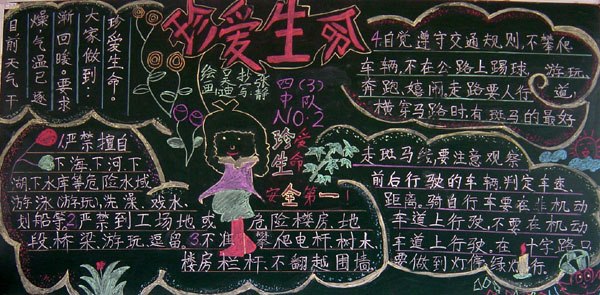 珍爱生命
目前天气干
燥,气温已逐
渐回暖。要求
大家做到:
珍爱生命。
绘画 抄写 张静
四(3)
中队
NO:2
珍爱
生命
安全第一!
1.严禁擅自
下海下河下
湖、下水库等危险水域
游泳(游玩)、洗澡、戏水、
划船等2.严禁到工场地或危险楼房地
段桥梁,游玩逗留.3不准攀爬电杆,树木
楼房栏杆.不翻越围墙.
4.自觉遵守交通规则,不攀爬
车辆,不在公路上踢球、游玩、
奔跑、嬉闹,走路要人行道!
横穿马路时有斑马的最好
走斑马线,要注意观察
前后行驶的车辆,判定车速,
距离.骑自行车要在非机动
车道上行驶,不要在机动
车道上行驶,在十字路口
要做到灯停绿灯行.